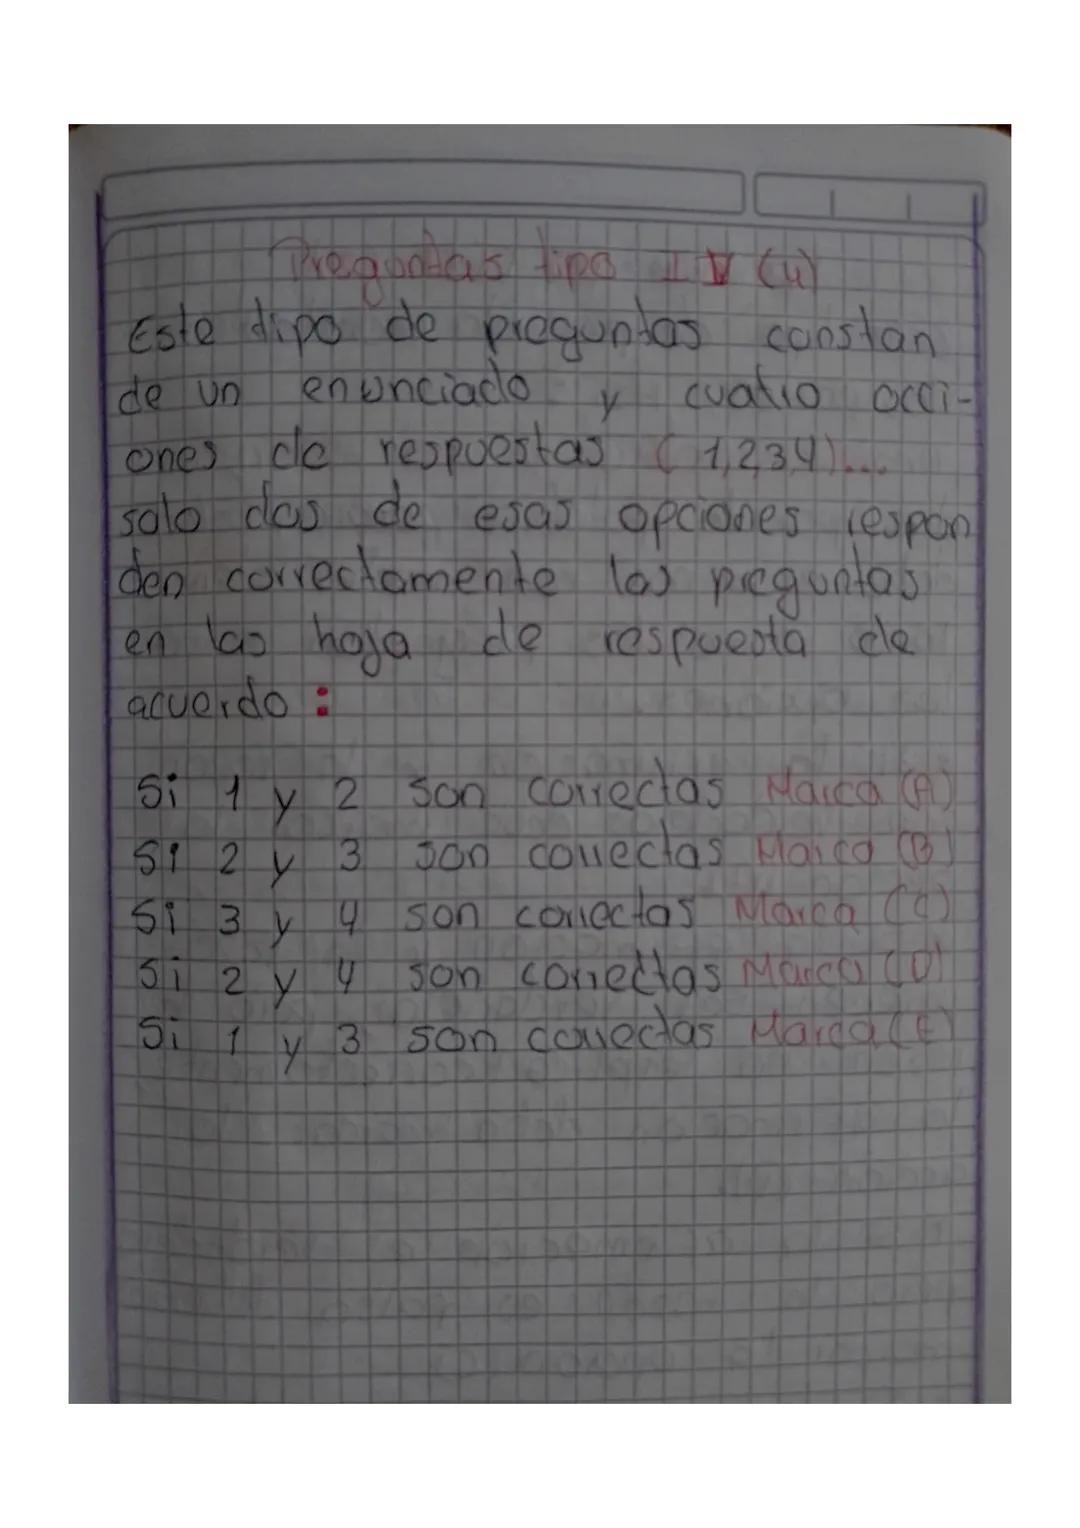 Preguntas tipo IV (4)
Este tipo de preguntas constan
de un enunciado y cuatro occi-
ones de respuestas (1,2,3,4)...
solo dos de esas opciones respon
den correctamente las preguntas
en las hoja de respuesta de
acuerdo :
Si 1 y 2 son correctas Marca (A)
Si 2 y 3 son correctas Marca (B)
Si 3 y 4 son correctas Marca (C)
Si 2 y 4 son correctas Marca (D)
Si 1 y 3 son correctas Marca (E)